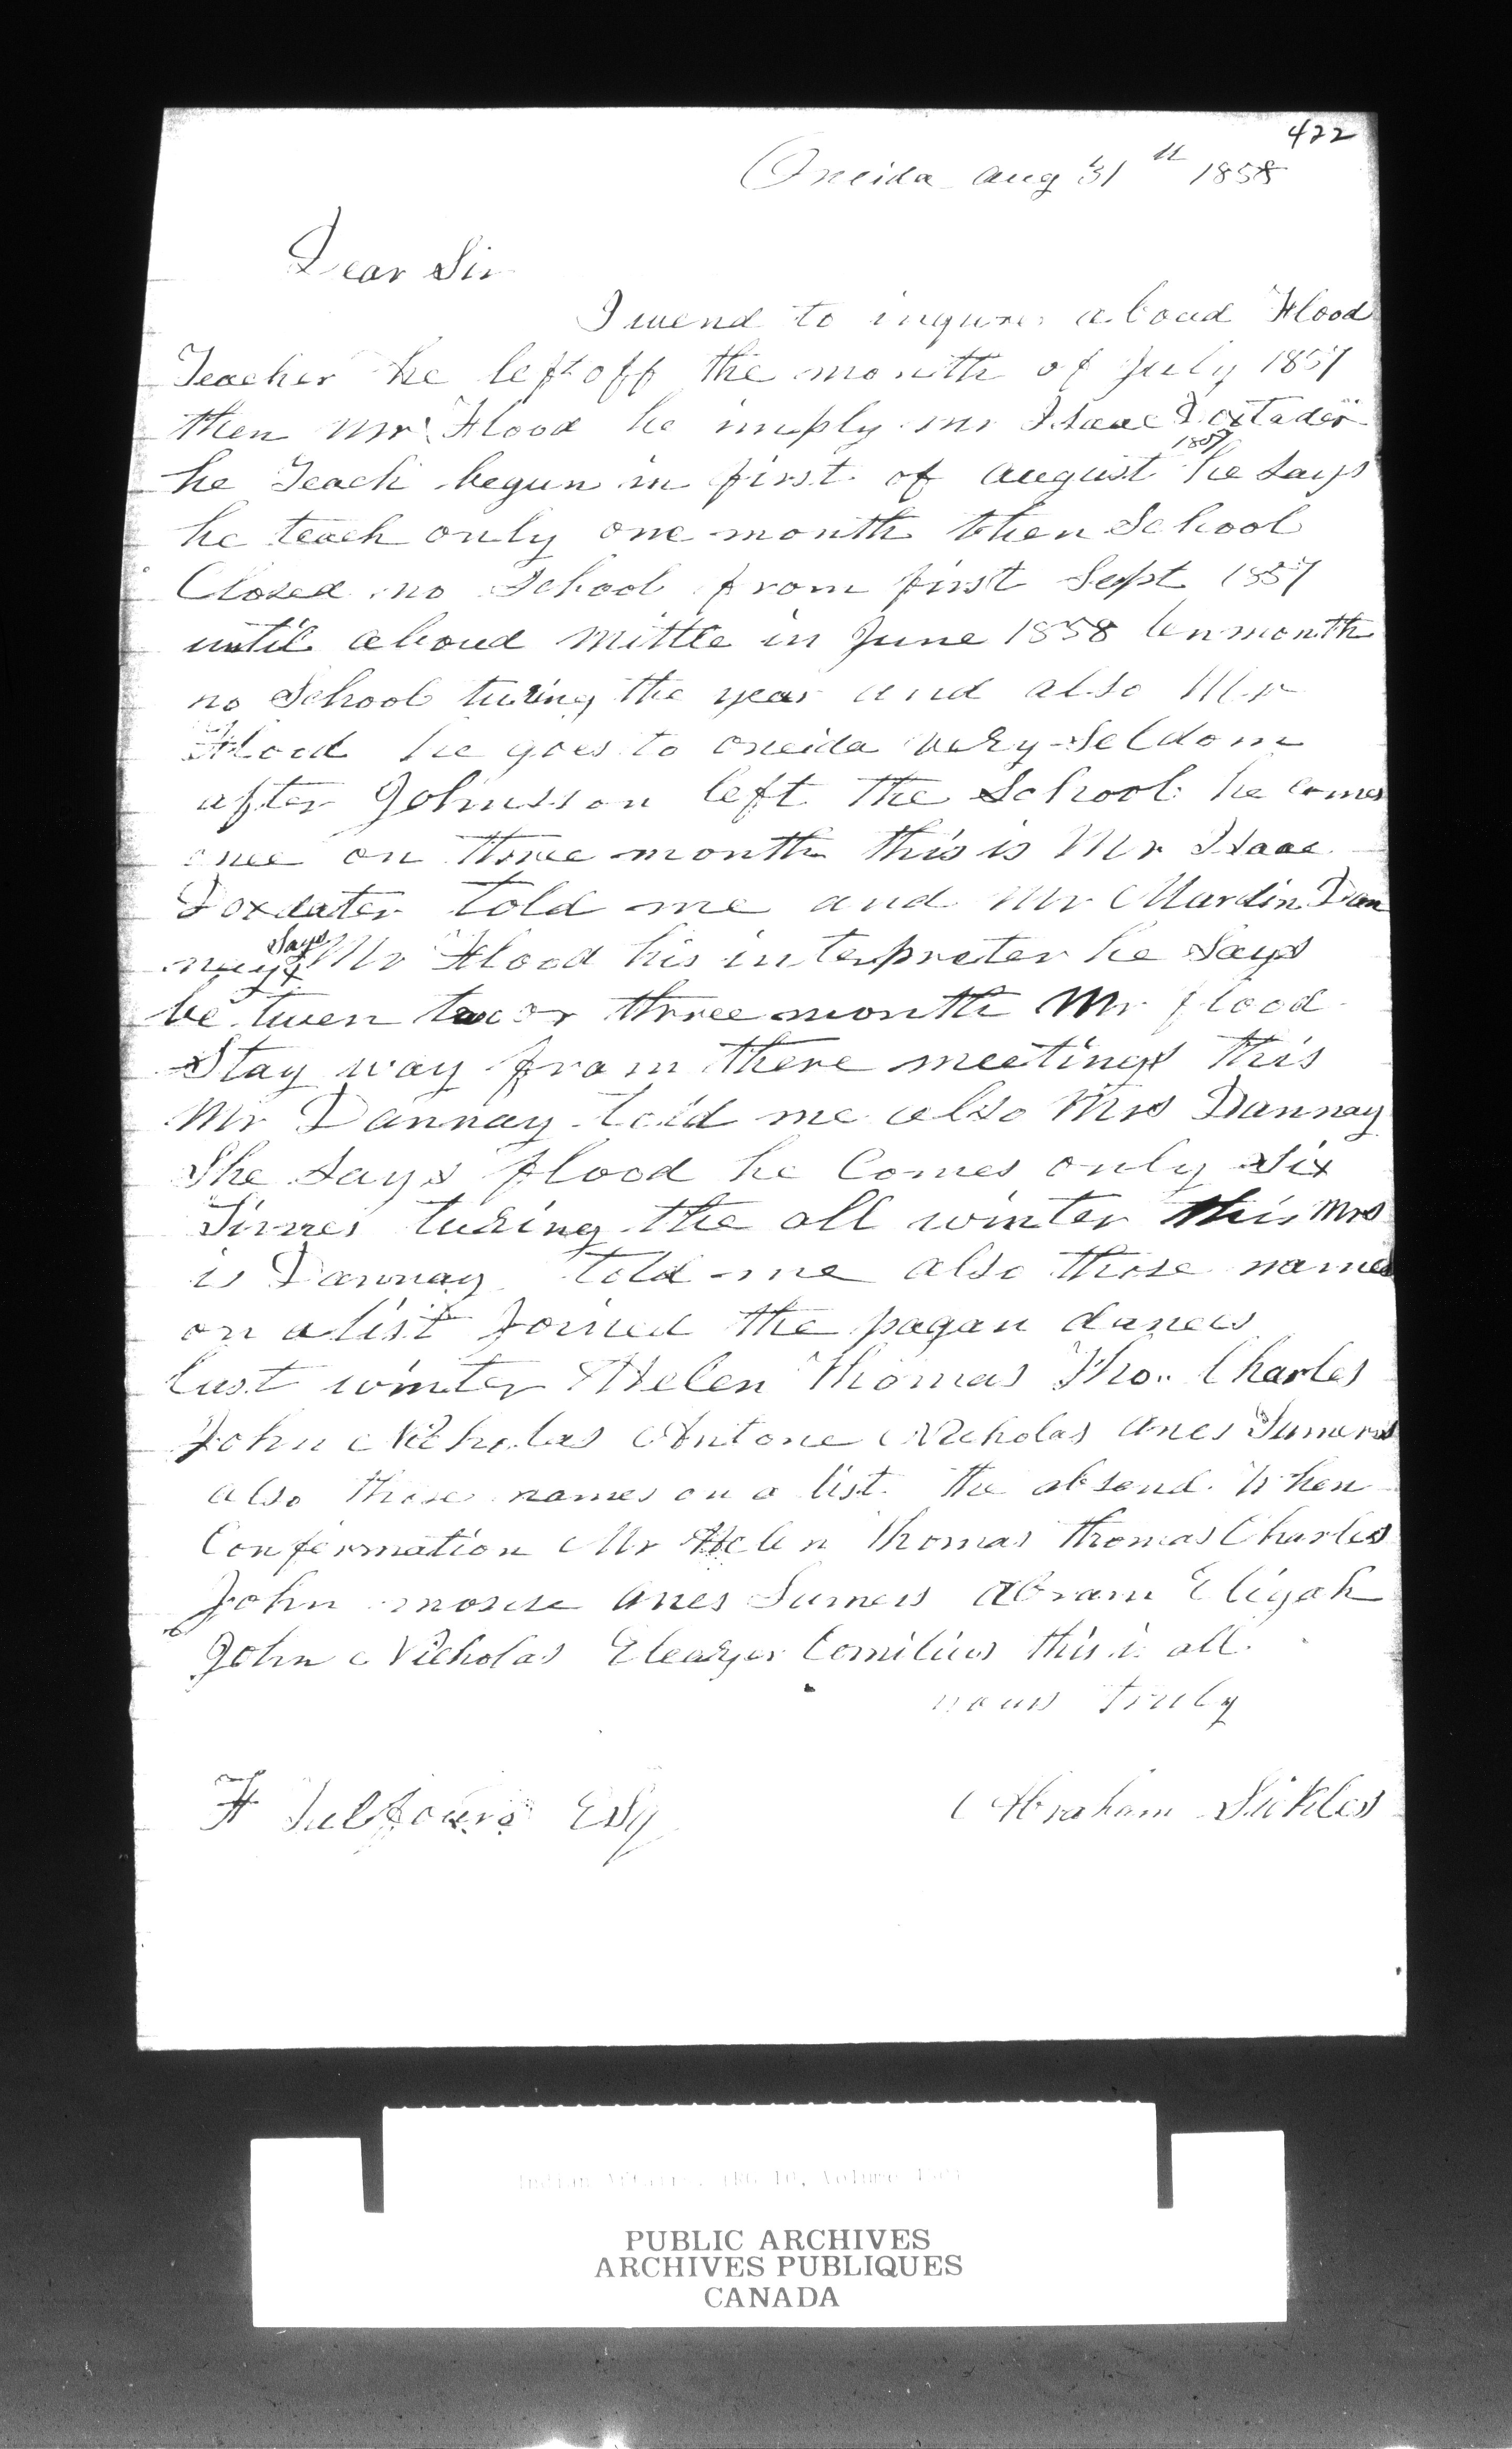 422
Oneida Aug 31st 1858
Dear Sir
I wend to inquire aboud Flood
Teacher he left off the month of July 1857
then Mr Flood he imply Mr Isaac Doxtader
he Teach begun in first of August 1857 he says
he teach only one month then School
Closed no School from first Sept 1857
until aboud mittle in June 1858 ten month
no School turing the year and also Mr
Flood he goes to Oneida very Seldom
after Johnsson left the School he comes
once on three month this is Mr Isaac
Doxdater told me and Mr Mardin Dan
nay says Mr Flood his interpreter he Says
be twen two or three month Mr flood
Stay way from there meetings this
Mr Dannay told me also Mrs Dannay
She says flood he Comes only Six
Times turing the all winter this Mrs
is Dannay told me also those names
on a list Joined the pagan dances
last winter Helen Thomas Tho.. Charles
John Nicholas Antone Nicholas anes Sumers
also those names on a list the absend When
Confermation Mr Helen Thomas Thomas Charles
John mosse anes Sumers Abram Eligah
John Nicholas Eleazer Cornilius this is all
yours Truly
F Talfourd Esq
Abraham Sickles
Indian Affairs, (RG 10, Volume
PUBLIC ARCHIVES
ARCHIVES PUBLIQUES
CANADA